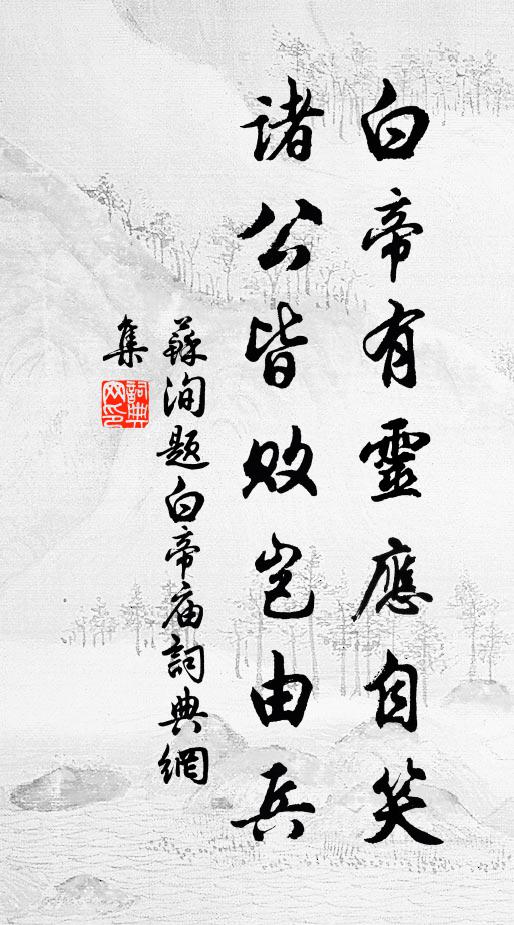 白帝有靈應自笑
諸公皆敗豈由兵
蘇洵題白帝庙詞典網
集
詞典网印